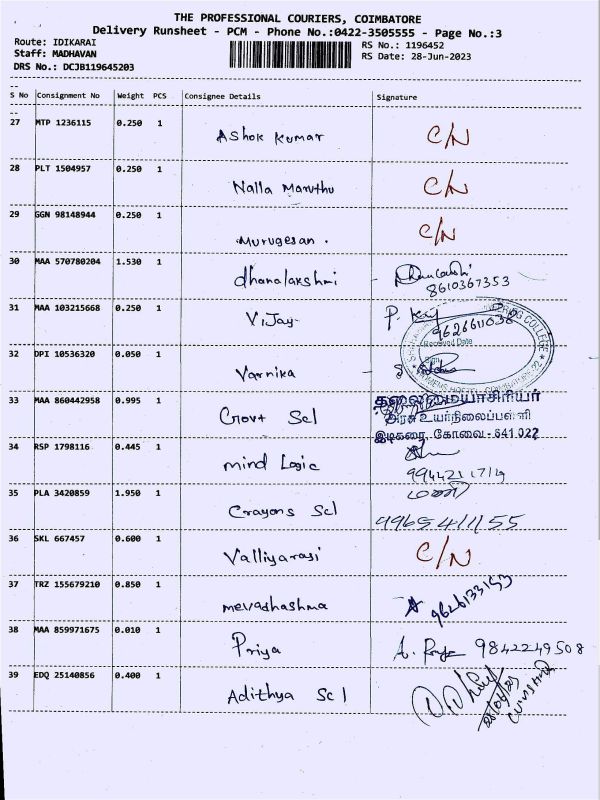 THE PROFESSIONAL COURIERS, COIMBATORE
Delivery Runsheet - PCM - Phone No.:0422-3505555 - Page No.:3
Route: IDIKARAI
Staff: MADHAVAN
DRS No.: DCJB119645203
RS No.: 1196452
RS Date: 28-Jun-2023
S No Consignment No Weight PCS Consignee Details Signature
27 MTP 1236115 0.250 1 Ashok Kumar C/N
28 PLT 1504957 0.250 1 Nalla Maruthu C/N
29 GGN 98148944 0.250 1 Murugesan. C/N
30 MAA 570780204 1.530 1 dhanalakshmi
8610367353
31 MAA 103215668 0.250 1 Vijay P.
9626611036
Received Date
32 DPI 10536320 0.050 1 Varnika
33 MAA 860442958 0.995 1 Govt Scl
தலைமையாசிரியர்
அரசு உயர்நிலைப்பள்ளி
இடிகரை, கோவை - 641 022
34 RSP 1798116 0.445 1 mind Logic
35 PLA 3420859 1.950 1 Crayons Scl மணி
36 SKL 667457 0.600 1 Valliyarasi C/N
37 TRZ 155679210 0.850 1 mevadhashma 9626133153
38 MAA 859971675 0.010 1 Priya A. Priya 9842249508
39 EDQ 25140856 0.400 1 Adithya Scl